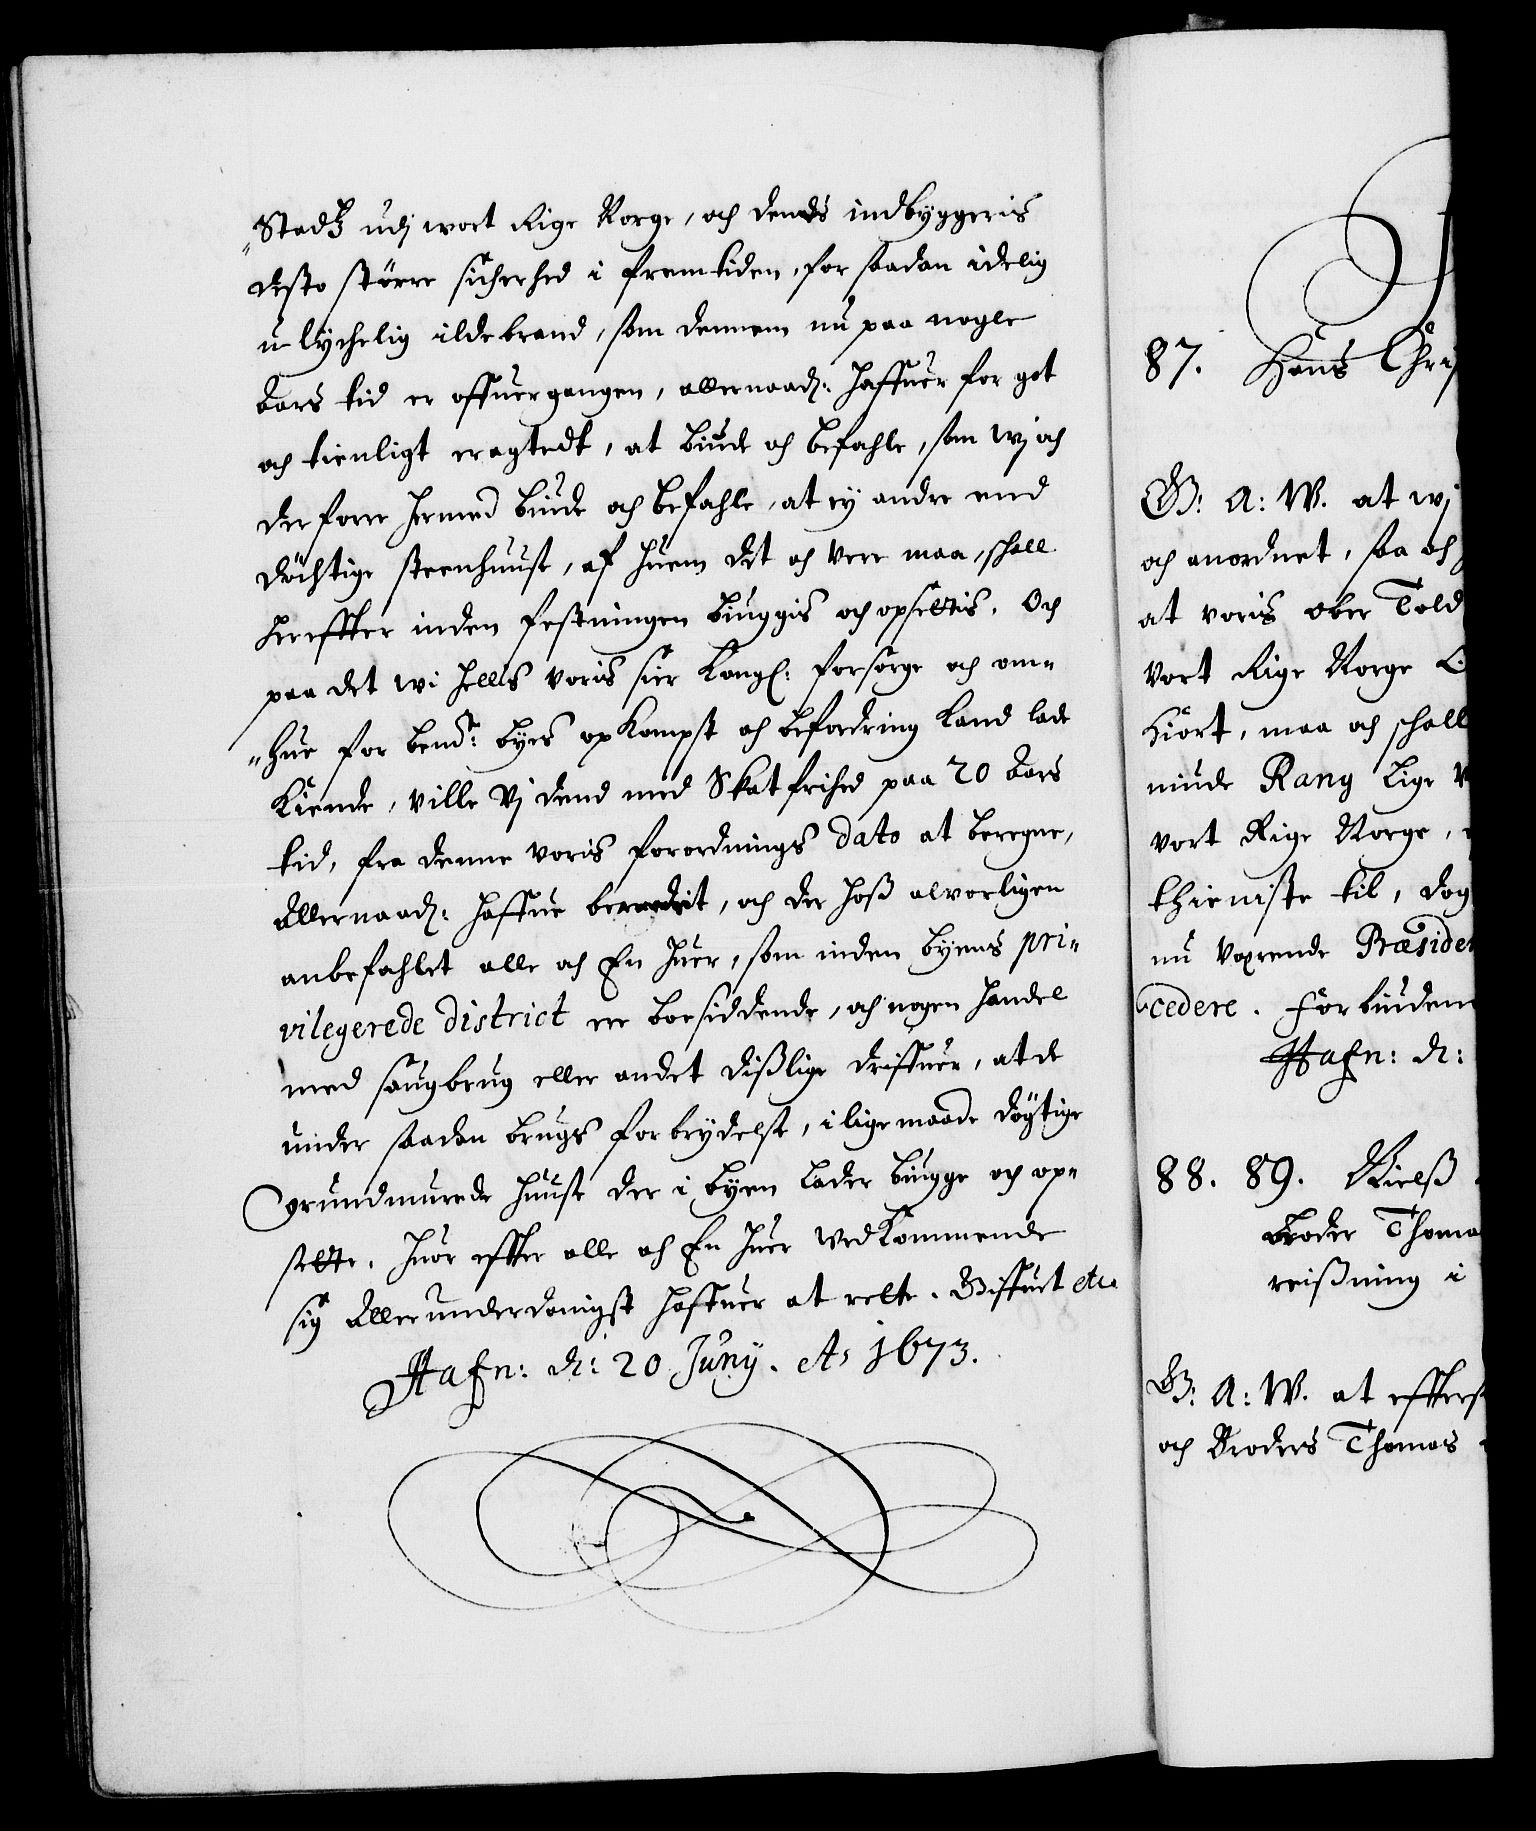 "Stadtz udj wort Rige Norge, och dends indbyggeris
desto större sicherhed i fremtiden, for saadan idelig
u-lychelig ildebrand, som dennem nu paa nogle
Aars tid er offuergangen, allernaad: haffuer for got
och tienligt eragtedt, at biude och befahle, som wj och
der forre hermed biude och befahle, at ej andre end
döchtige steenhuuse, af huem det och vere maa, schall
hereffter inden festningen biuggis och opsettis. Och
paa det wi helles voris sier Kongl: forsorge och om-
"hue for bemte: byes opkompst och befordring kand lade
kiende, ville Vj dend med Skatfrihed paa 20 Aars
tid, fra denne voris forordnings dato at beregne,
Allernaad: haffue benaadit, och der hoß alvorligen
anbefahlet alle och En huer, som inden byens pri-
vilegerede district er boesiddende, och nogen handel
med saugbrug eller andet dißlige driffuer, at de
under saadan brugs forbrydelse, i lige maade döytige
grundmurede huuse der i byen lader biugge och op-
sette. Huor effter alle och En huer vedkommende
sig Allerunderdanigst haffuer at rette. Giffuet etc.
Hafn: d: 20 Junij. Ao 1673.

87. Hans Chri
G: A: W. at wj
och anordnet, saa och
at voris ober Told
Vort Rige Norge
Hiort, maa och schall
niude Rang lige
vort Rige Norge,
thieniste til, dog
nu verende Præside
cedere. Forbiuden
Hafn: d:
88. 89. Nielß
Broder Thoma
reißning i
G: A: W. at effters
och Broders Thomas